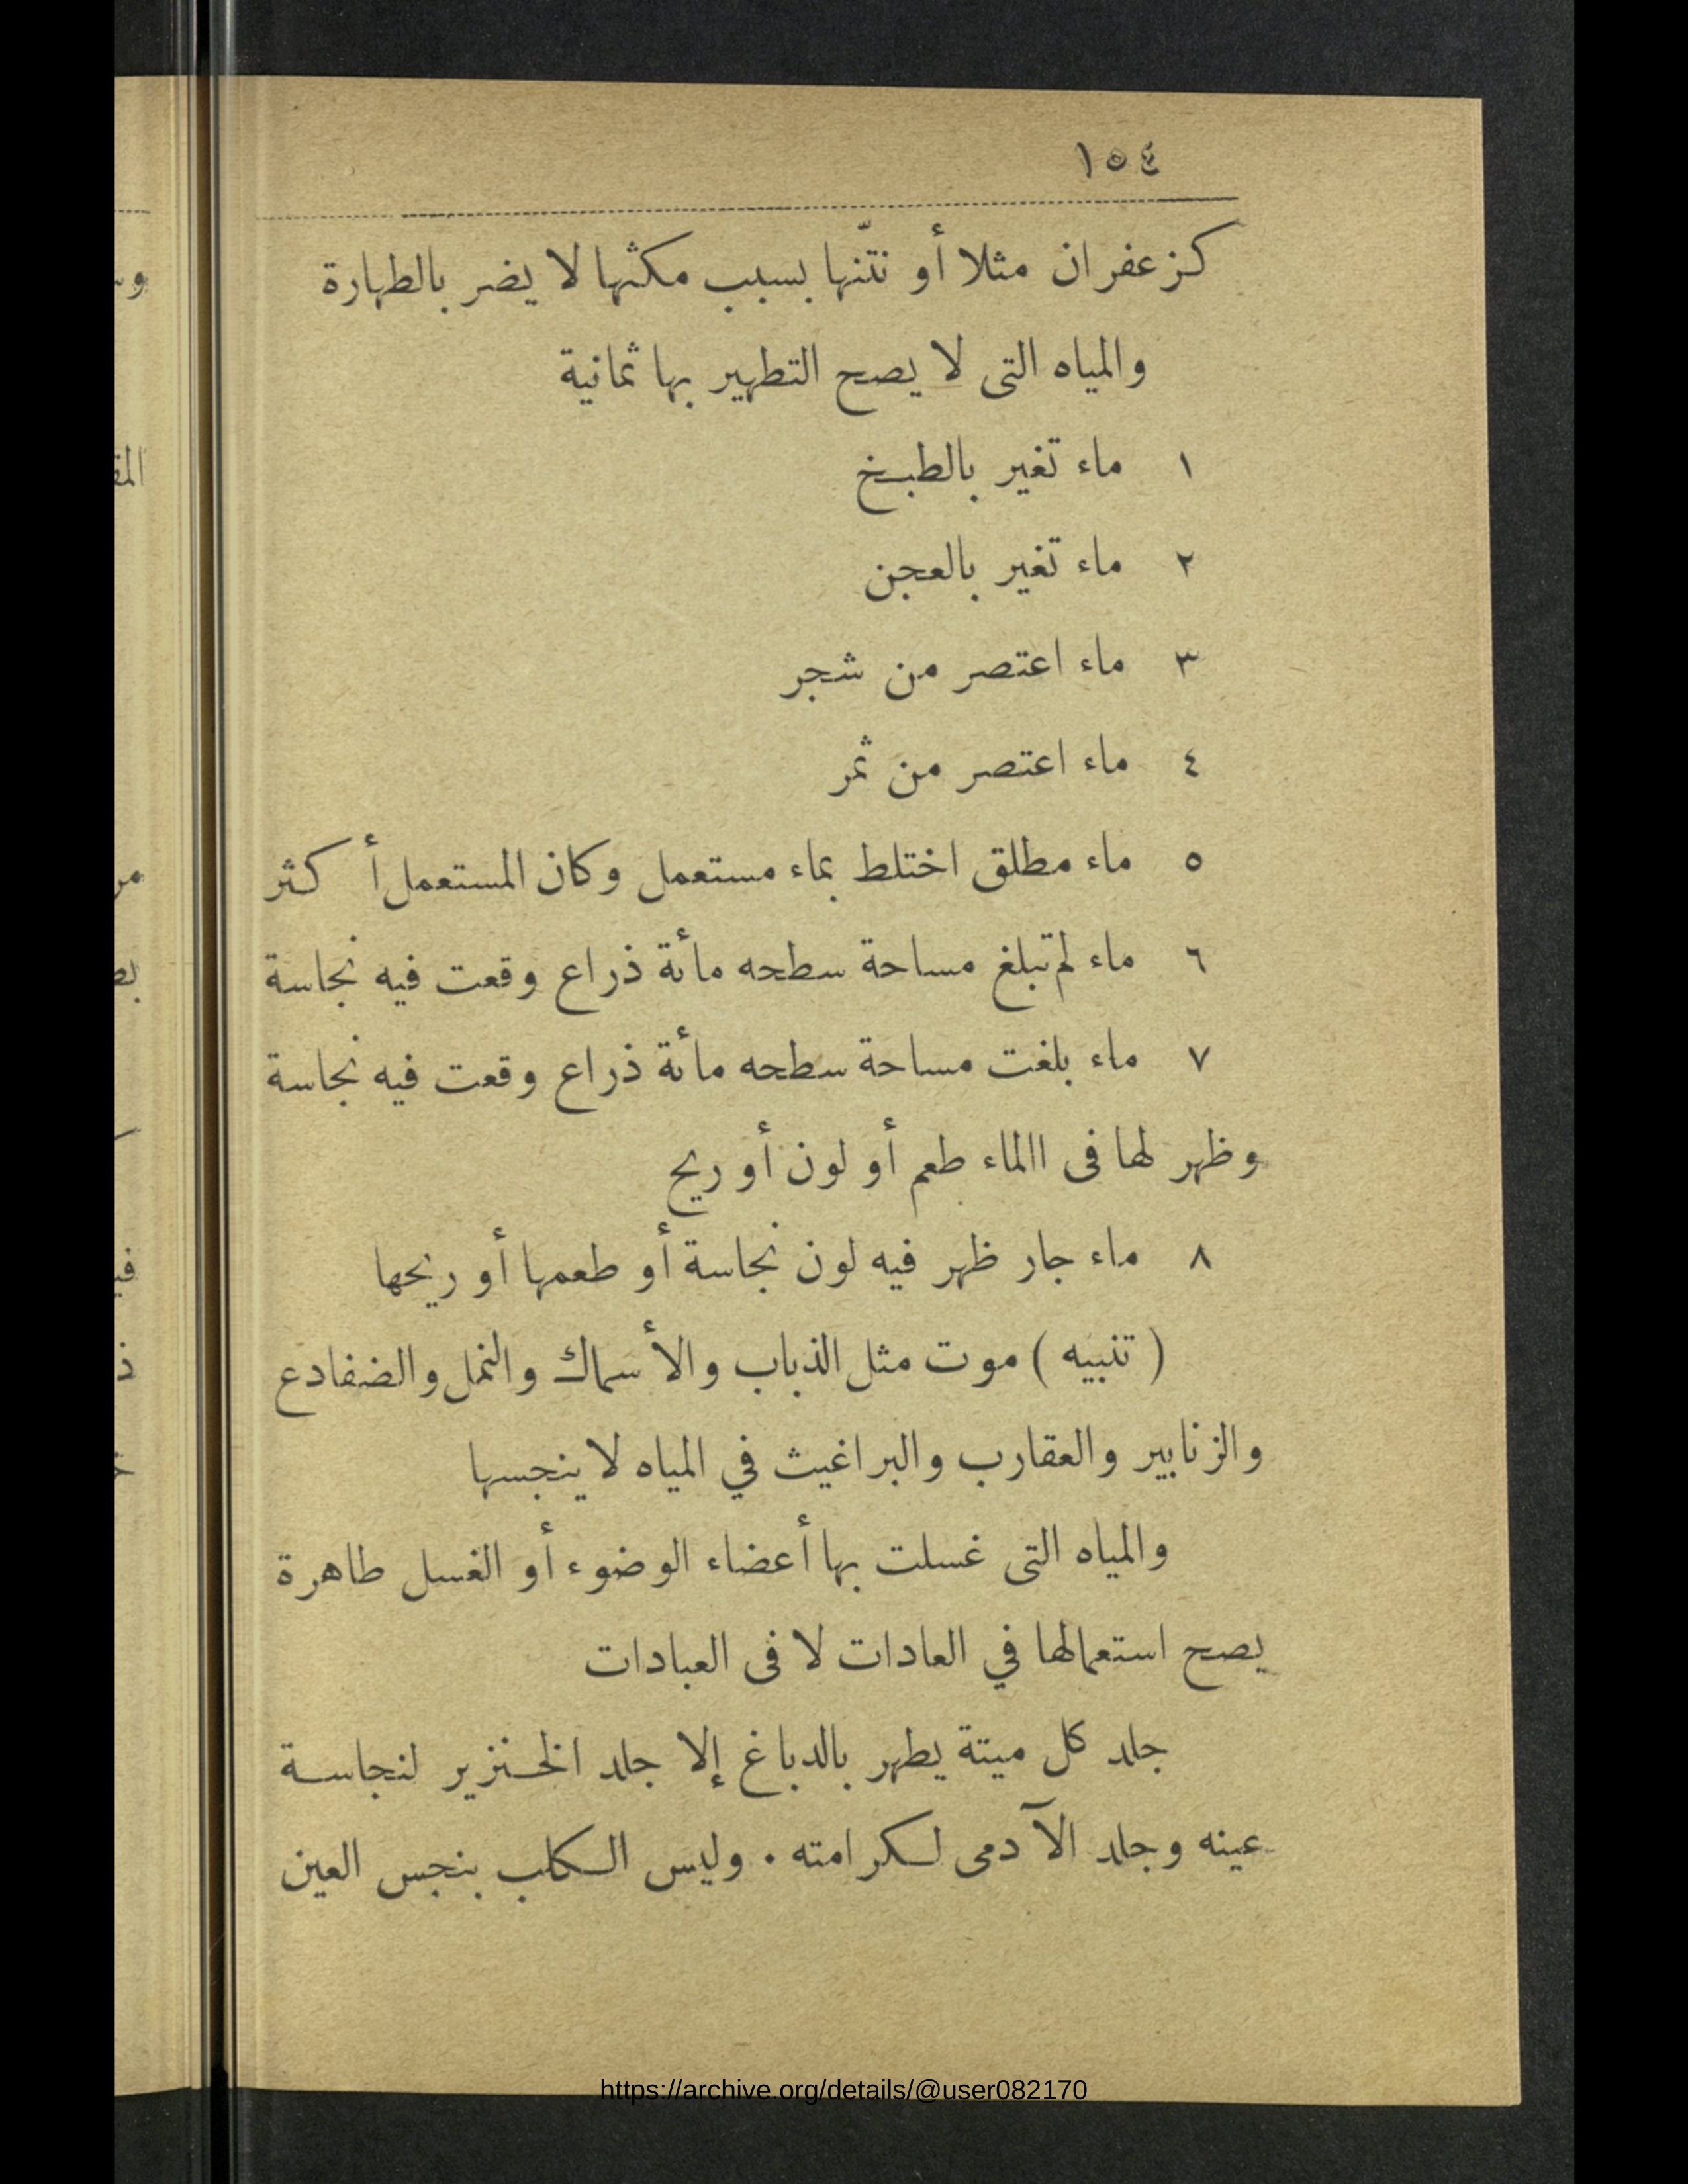 ١٥٤
كزعفران مثلا أو نتّنها بسبب مكثها لا يضر بالطهارة
والمياه التى لا يصح التطهير بها ثمانية
١ ماء تغير بالطبخ
٢ ماء تغير بالعجن
٣ ماء اعتصر من شجر
٤ ماء اعتصر من ثمر
٥ ماء مطلق اختلط بماء مستعمل وكان المستعمل أكثر
٦ ماء لم تبلغ مساحة سطحه مائة ذراع وقعت فيه نجاسة
٧ ماء بلغت مساحة سطحه مائة ذراع وقعت فيه نجاسة
وظهر لها فى االماء طعم أو لون أو ريح
٨ ماء جار ظهر فيه لون نجاسة أو طعمها أو ريحها
( تنبيه ) موت مثل الذباب والأسماك والنمل والضفادع
والزنابير والعقارب والبراغيث في المياه لا ينجسها
والمياه التى غسلت بها أعضاء الوضوء أو الغسل طاهرة
يصح استعمالها في العادات لا فى العبادات
جلد كل ميتة يطهر بالدباغ إلا جلد الخنزير لنجاسة
عينه وجلد الآدمى لكرامته . وليس الكلب بنجس العين
https://archive.org/details/@user082170